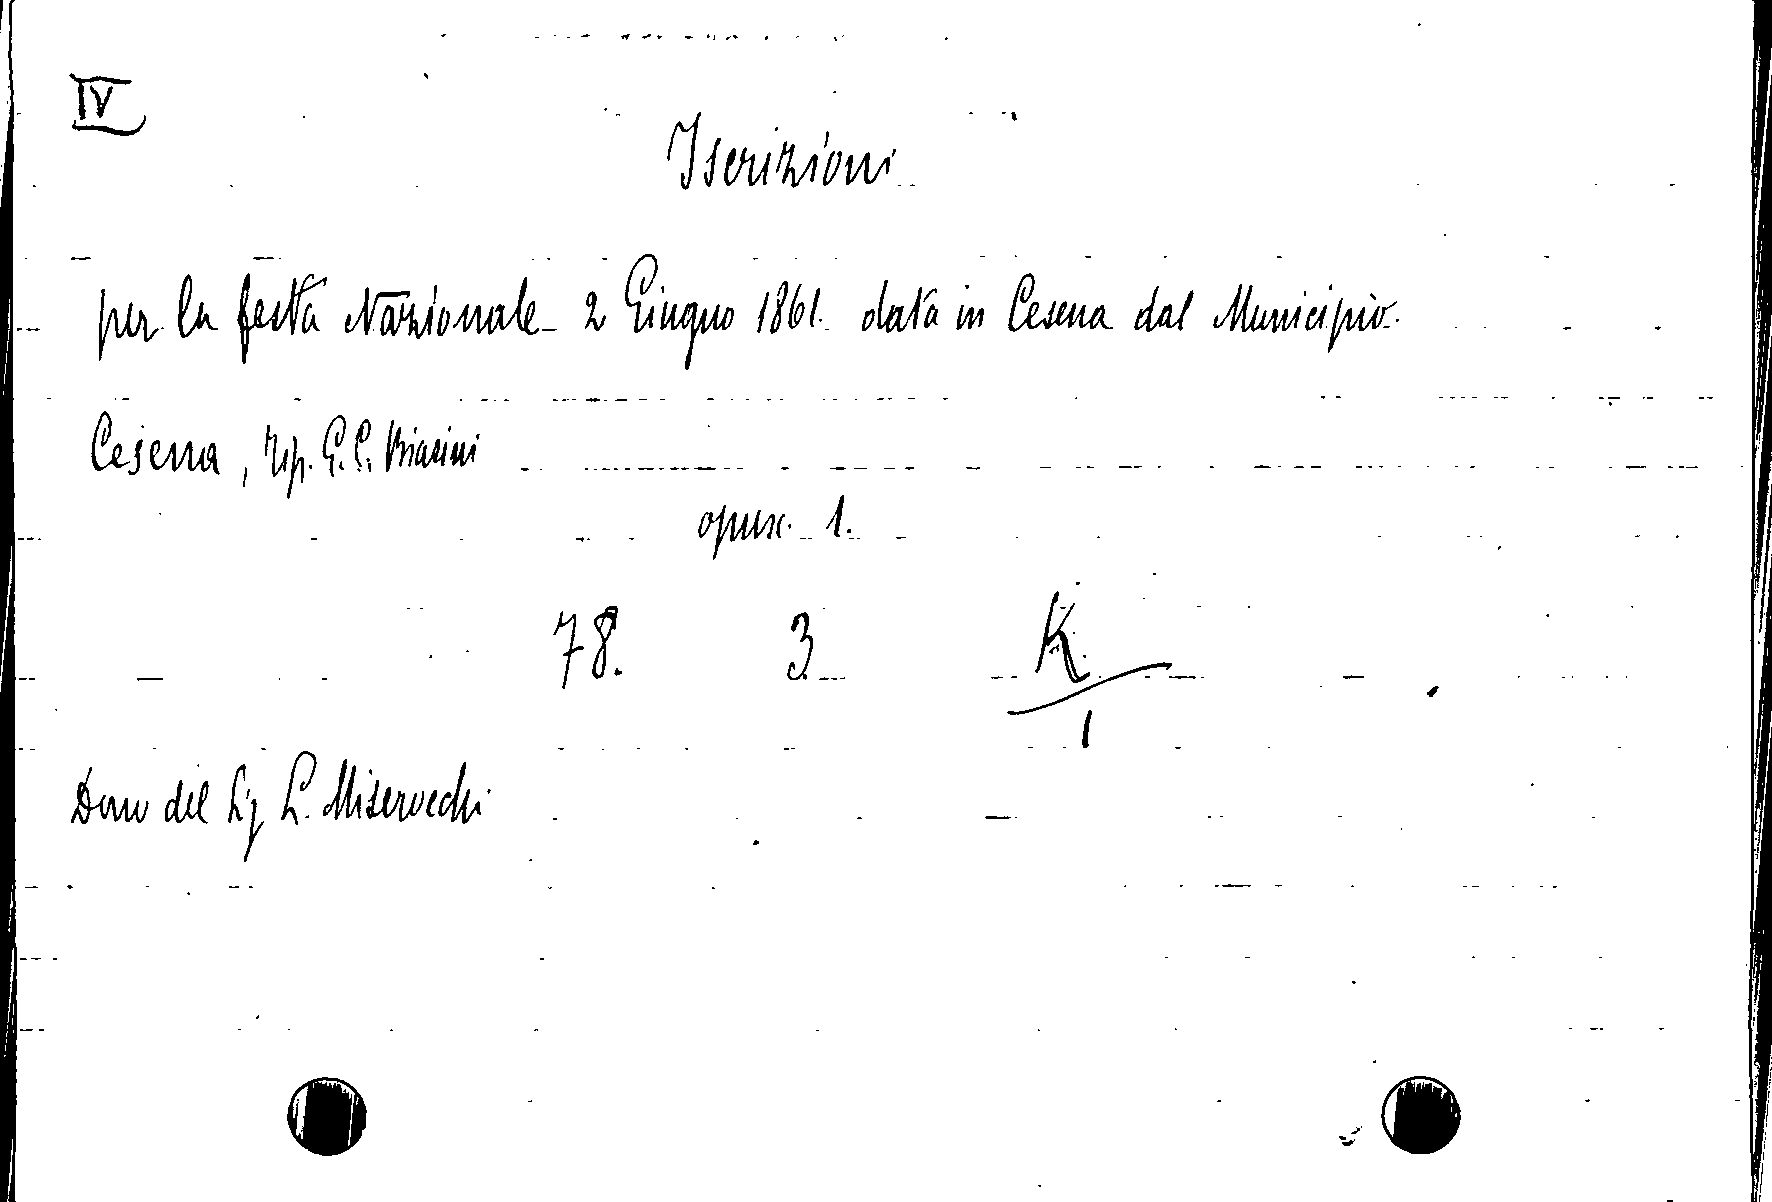 IV
Iscrizioni
per la festa Nazionale 2 Giugno 1861. data in Cesena dal Municipio.
Cesena, tip. G. C. Biasini
opusc. 1.
78. 3 K
1
Dono del Sig L. Miserocchi